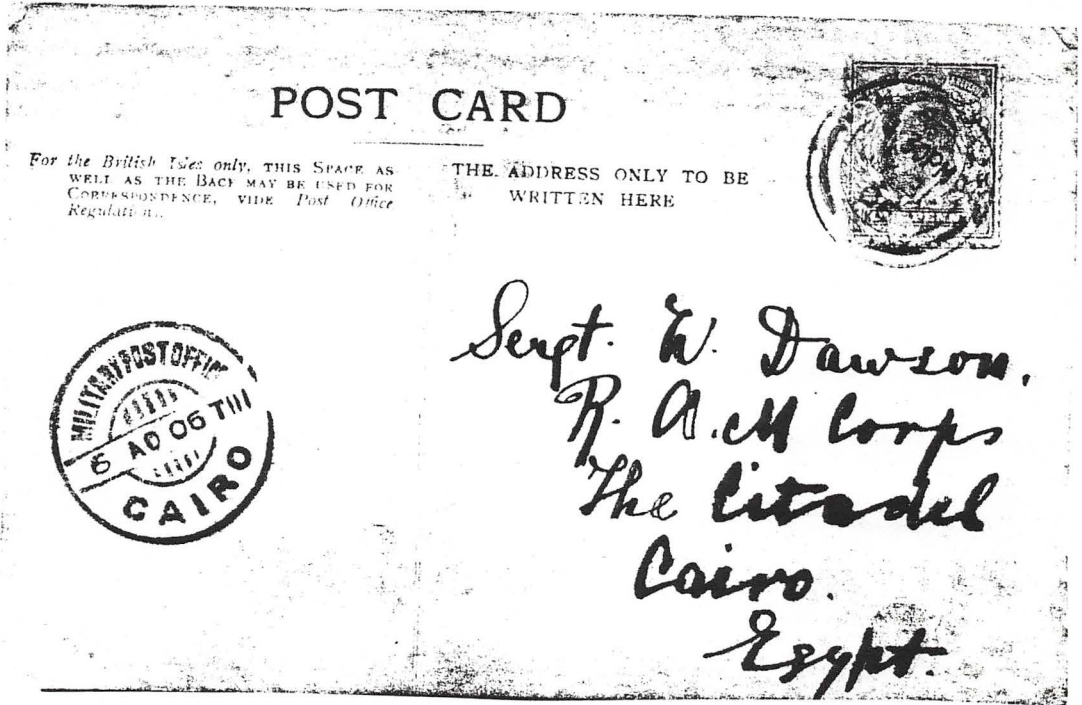 POST CARD
For the British Isles only, THIS SPACE AS
WELL AS THE BACK MAY BE USED FOR
CORRESPONDENCE, VIDE Post Office
Regulations.
THE ADDRESS ONLY TO BE
WRITTEN HERE
MILITARY POST OFFICE
6 AO 06 TIII
CAIRO
Sergt. W. Dawson.
R. A. M Corps
The Citadel
Cairo.
Egypt.